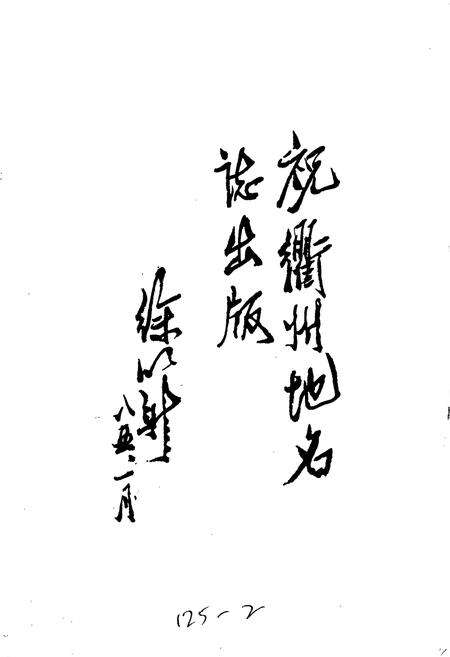 祝衢州地名
誌出版
徐以
八五.一月
125-2